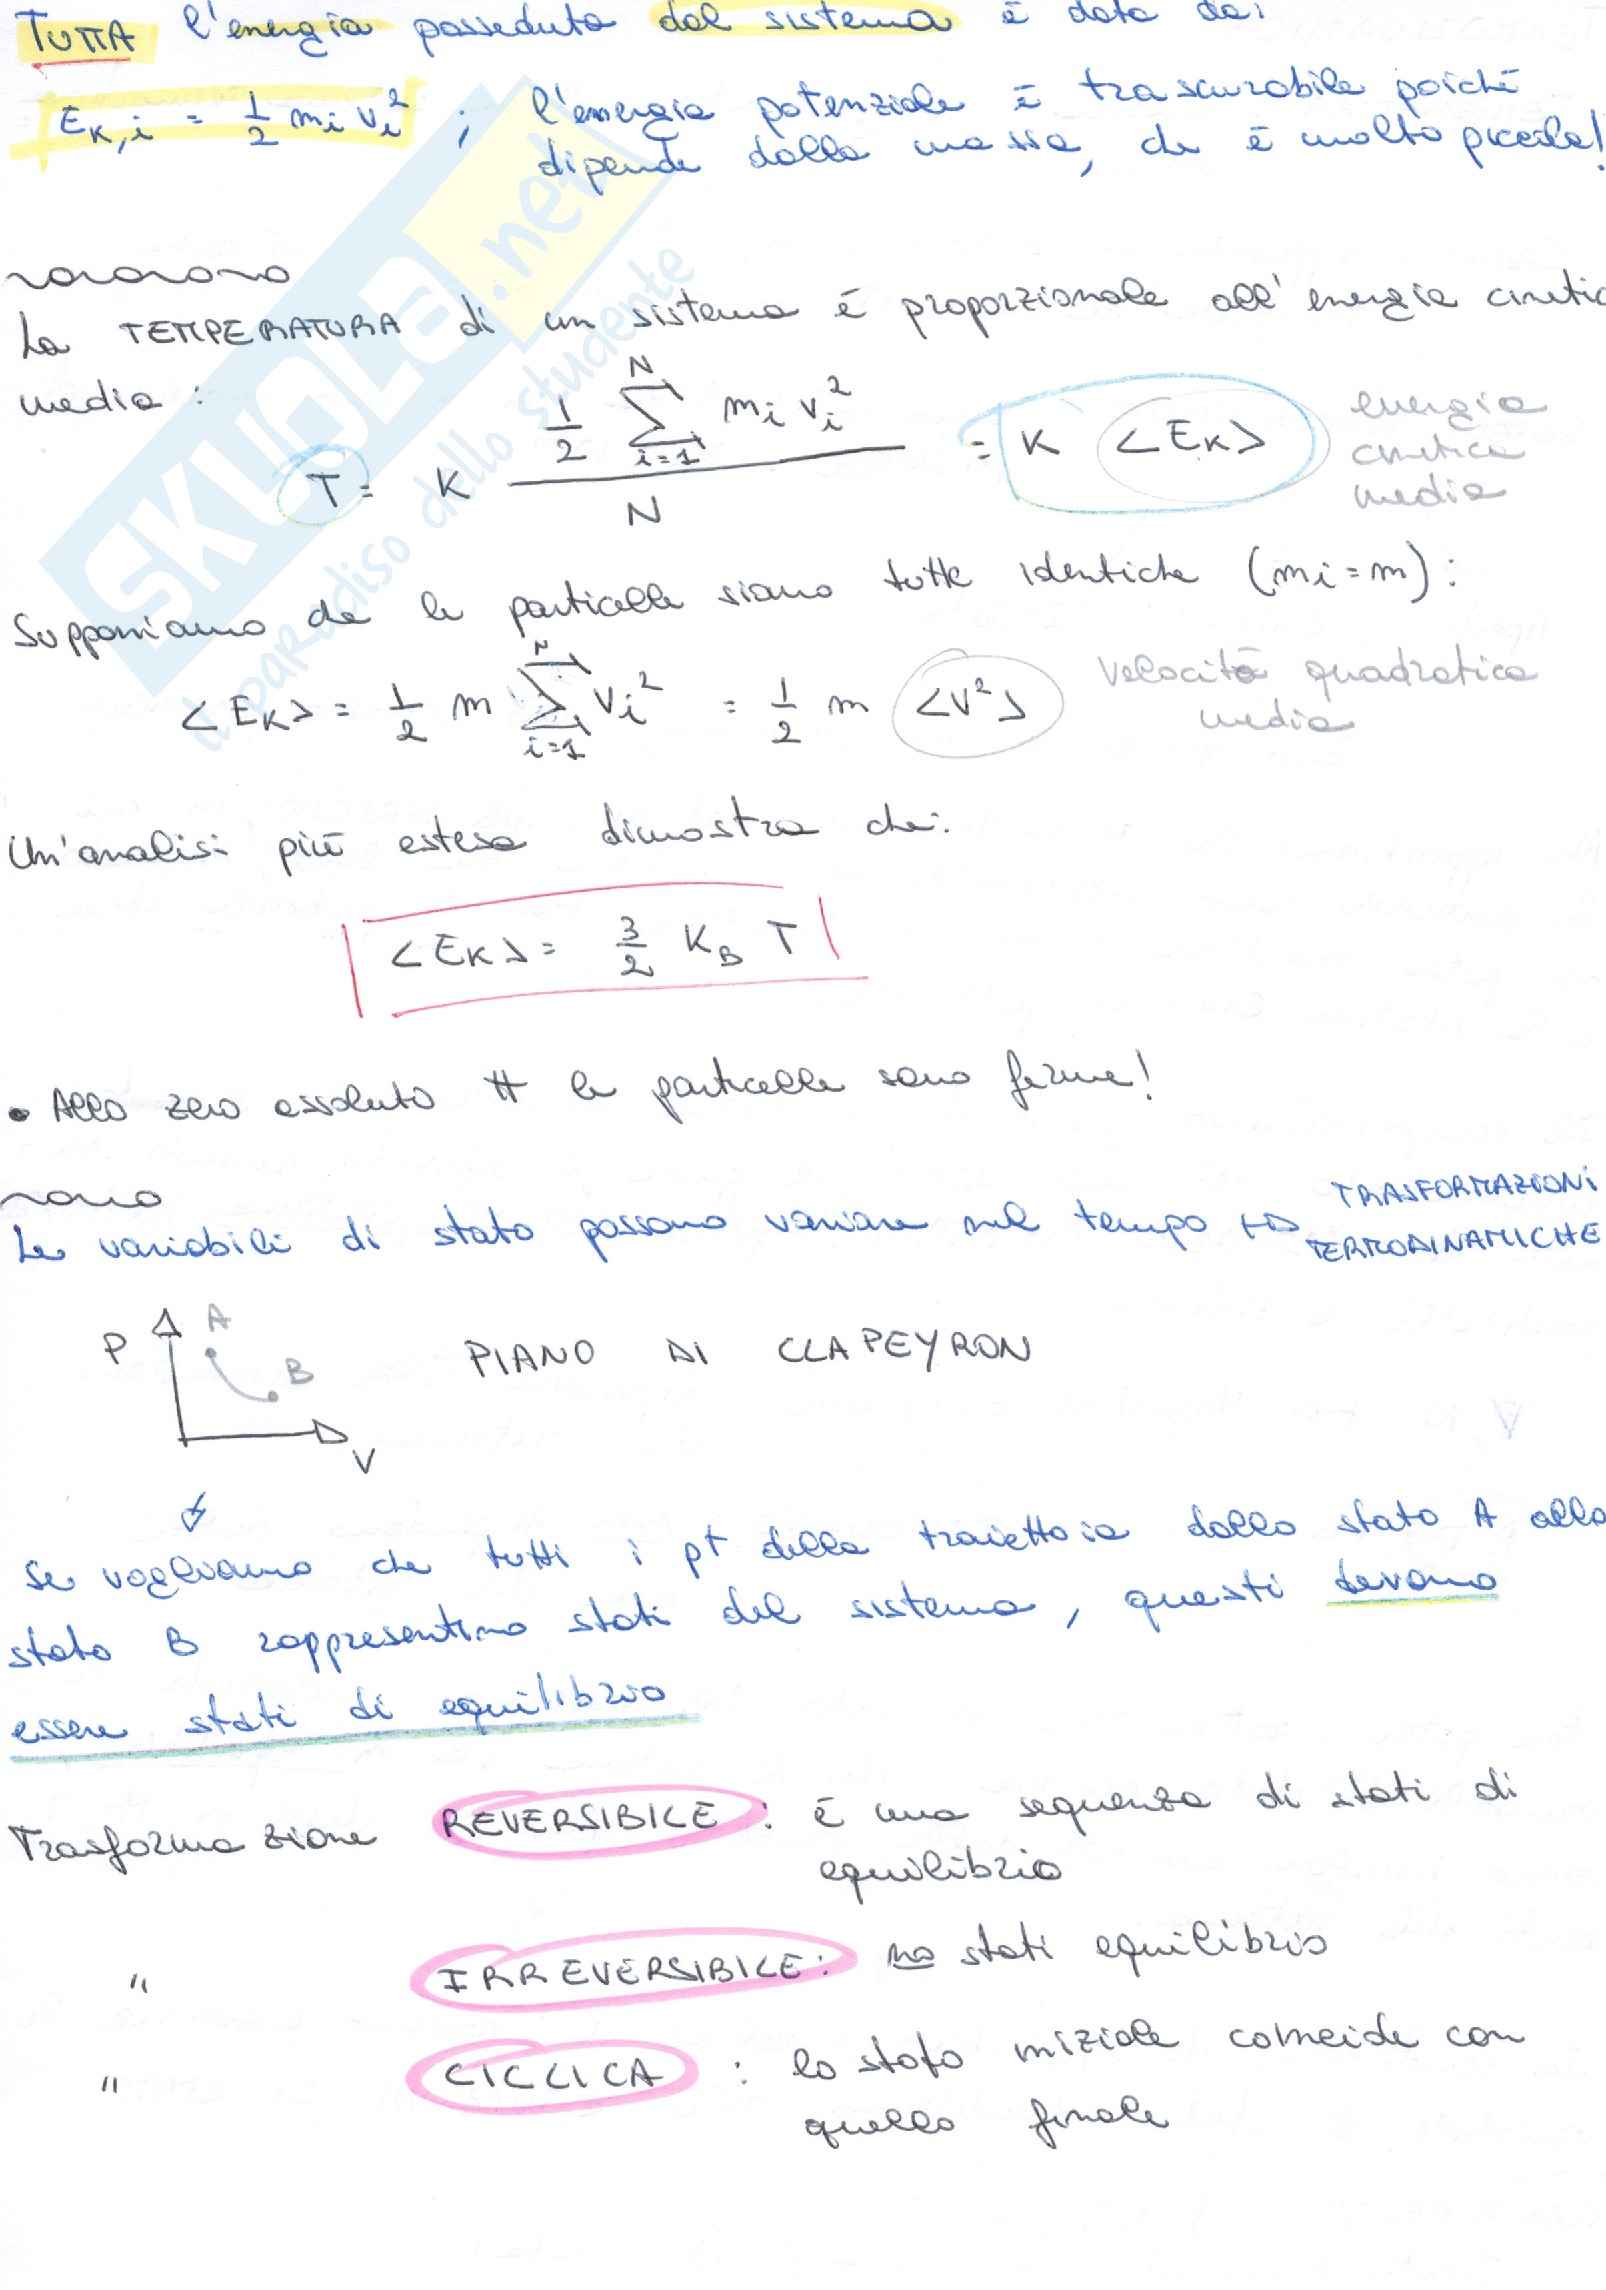 TUTTA l'energia posseduta dal sistema è data da:
E_K,i = 1/2 m_i v_i² ; l'energia potenziale è trascurabile poiché
dipende dalla massa, che è molto piccola!
La TEMPERATURA di un sistema è proporzionale all'energia cinetic
media :
T = K (1/2 Σ_{i=1}^{N} m_i v_i²) / N = K <E_K> energia cinetica media
Supponiamo che le particelle siano tutte identiche (m_i = m) :
<E_K> = 1/2 m Σ_{i=1}^{N} v_i² = 1/2 m <V²> velocità quadratica media
Un'analisi più estesa dimostra che:
<E_K> = 3/2 K_B T
• Allo zero assoluto tt le particelle sono ferme!
Le variabili di stato possono variare nel tempo ↦ TRASFORMAZIONI TERMODINAMICHE
P A B V
PIANO DI CLAPEYRON
Se vogliamo che tutti i pt della traiettoia dallo stato A allo
stato B rappresentino stati del sistema, questi devono
essere stati di equilibrio
Trasformazione REVERSIBILE : è una sequenza di stati di
equilibrio
" IRREVERSIBILE: no stati equilibrio
" CICLICA : lo stato iniziale coincide con
quello finale
SKUOLA.net
il paradiso dello studente